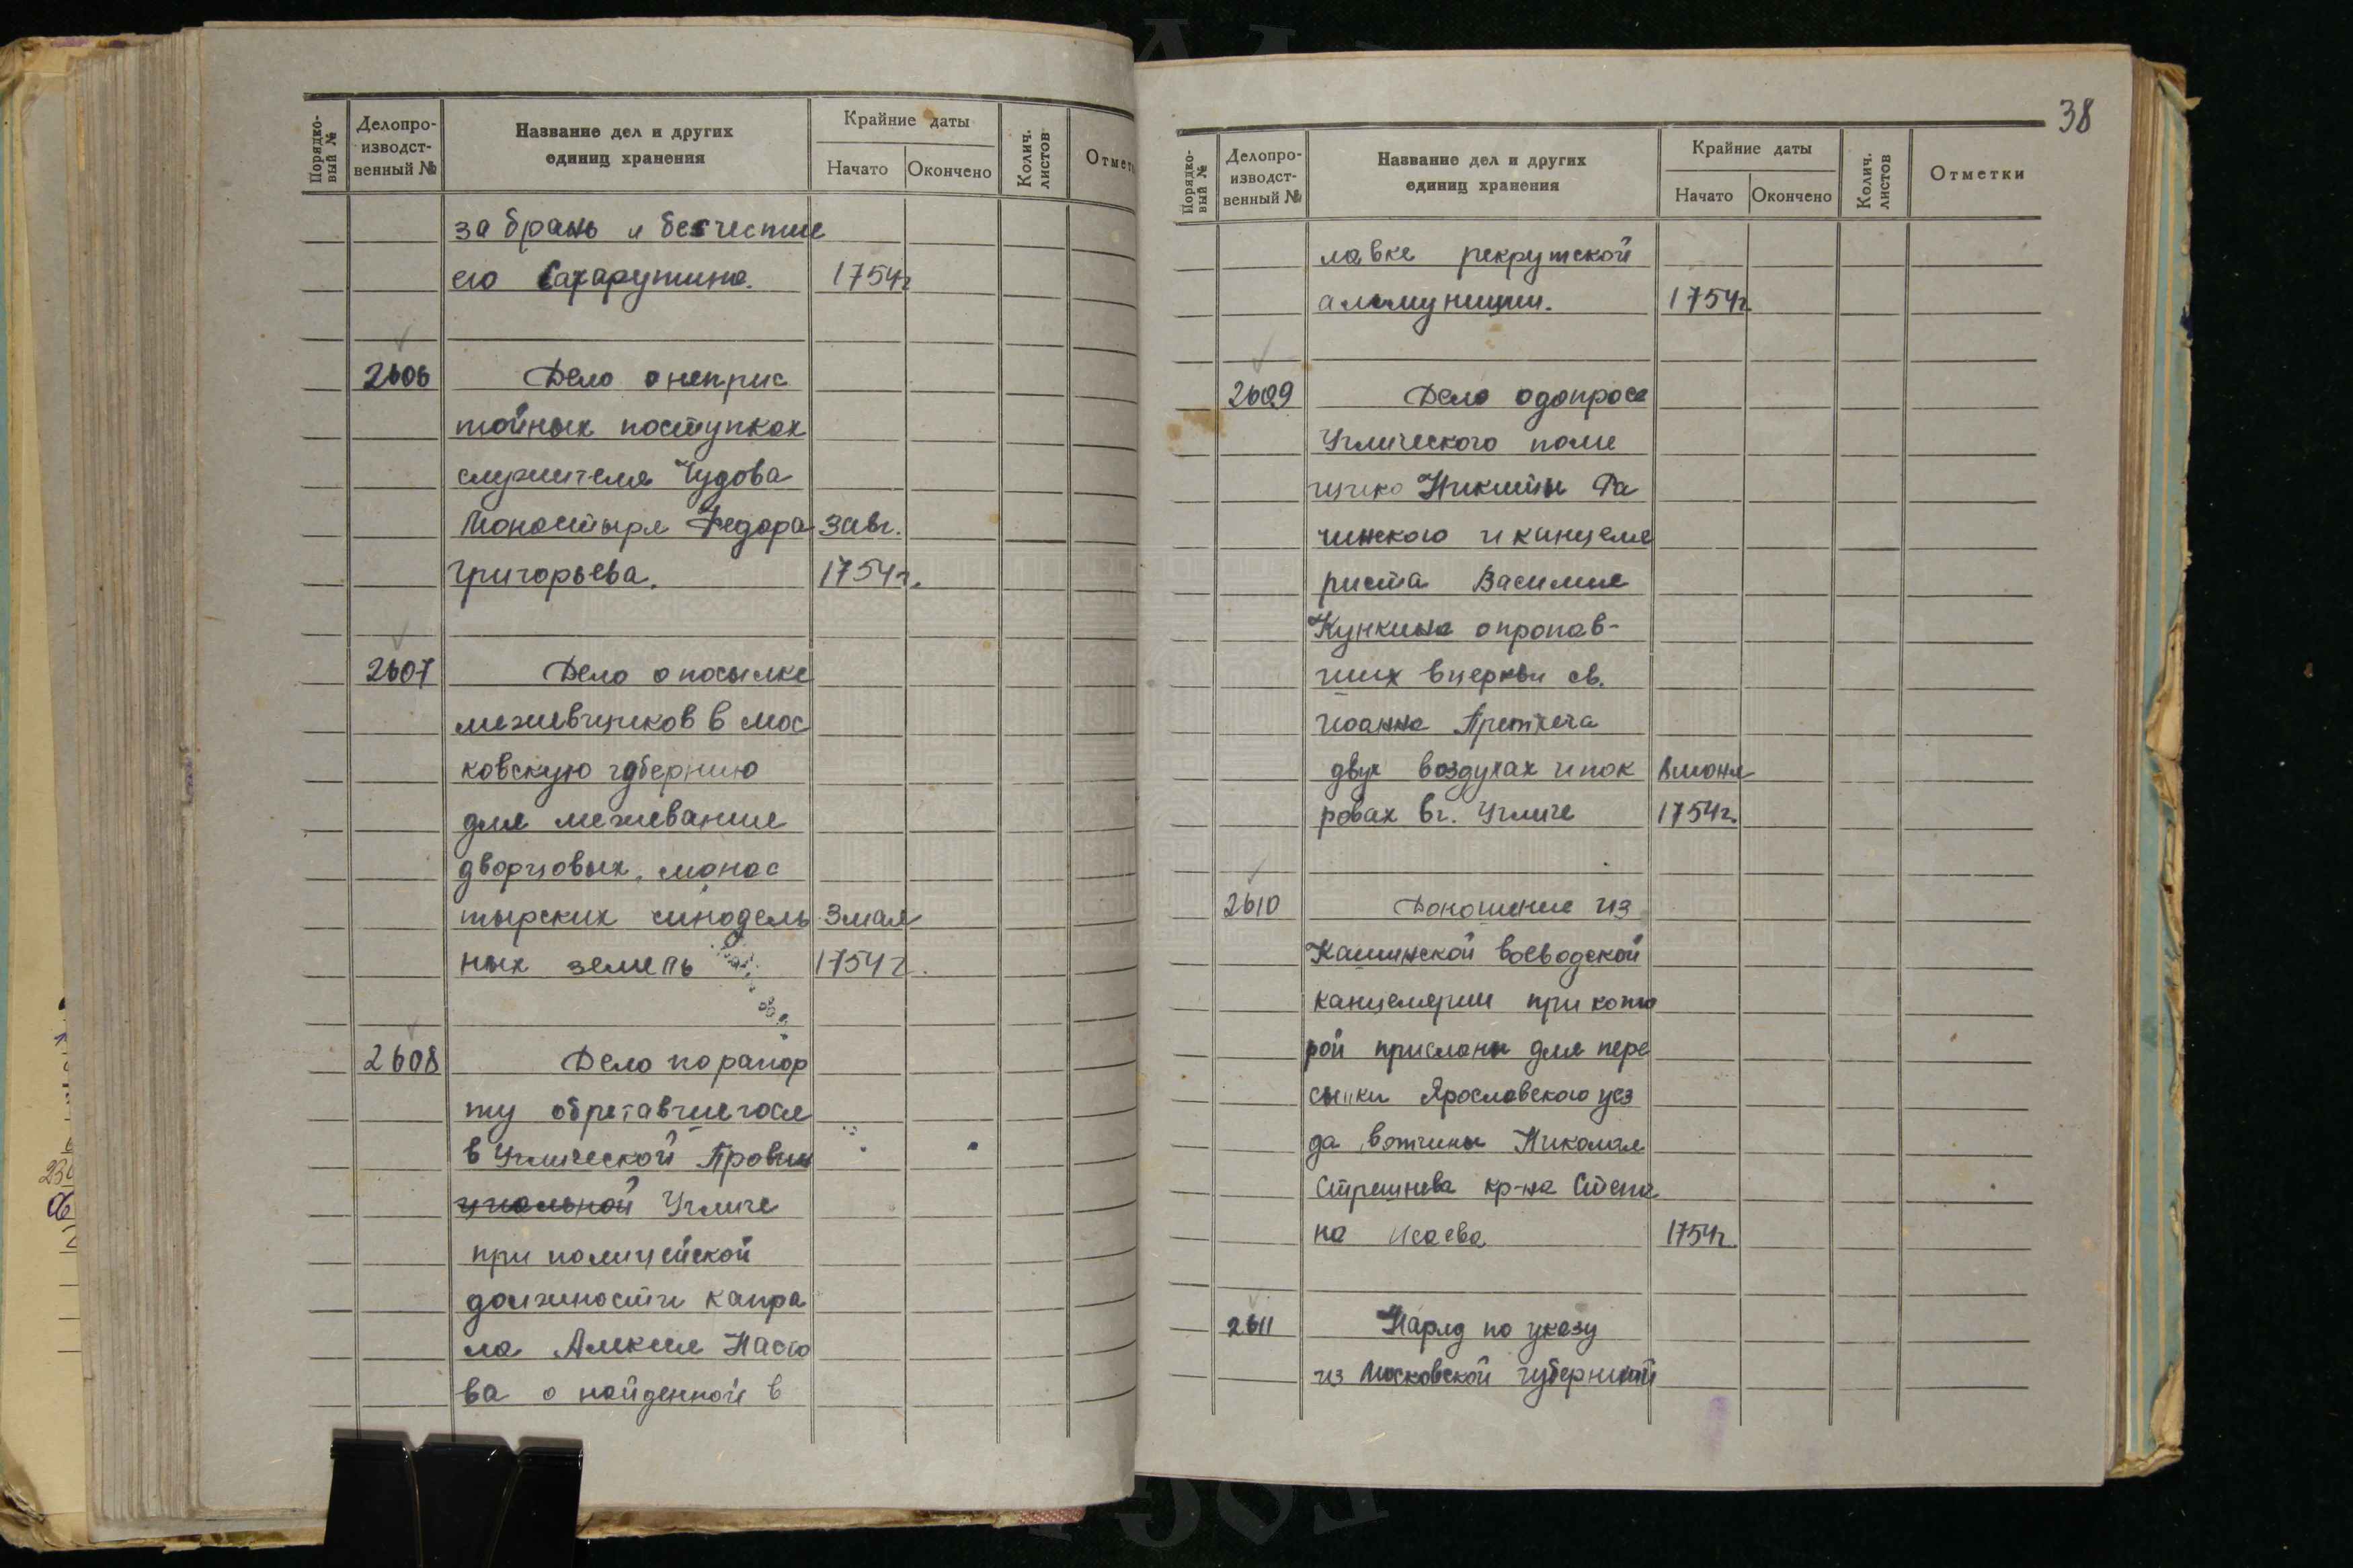 Порядко-
вый №
Делопро-
изводст-
венный №
Название дел и других
единиц хранения
Крайние даты
Начато
Окончено
Колич.
листов
Отметк
за брань и бесчестие
его Сахарутина. 1754г
2606 Дело о неприс
тойных поступках
служителя Чудова
Монастыря Федора 3 авг.
Григорьева. 1754г.
2607 Дело о посылке
межевщиков в мос
ковскую губернию
для межевание
дворцовых, монас
тырских синодель 3 мая
ных земель 1754г.
2608 Дело по рапор
ту обретавшегося
в Угличской Провин
циальной Угличе
при полицейской
должности капра
ла Алексея
ва о найденной в
38
Порядко-
вый №
Делопро-
изводст-
венный №
Название дел и других
единиц хранения
Крайние даты
Начато
Окончено
Колич.
листов
Отметки
лавке рекрутской
амуниции. 1754г.
2609 Дело о допросе
Угличского поме
щика Никиты Ра
чинского и канцеля
риста Василия
Кункина о пропав-
ших в церкви св.
Иоанна Претчеча
двух воздухах и пок июня
ровах в г. Угличе 1754г.
2610 Доношение из
Кашинской воеводской
канцелярии при кото
рой присланы для пере
сылки Ярославского уез
да вотчины Николая
Стрешнева кр-на Степа
на Исаева 1754г.
2611 Наряд по указу
из Московской губернский